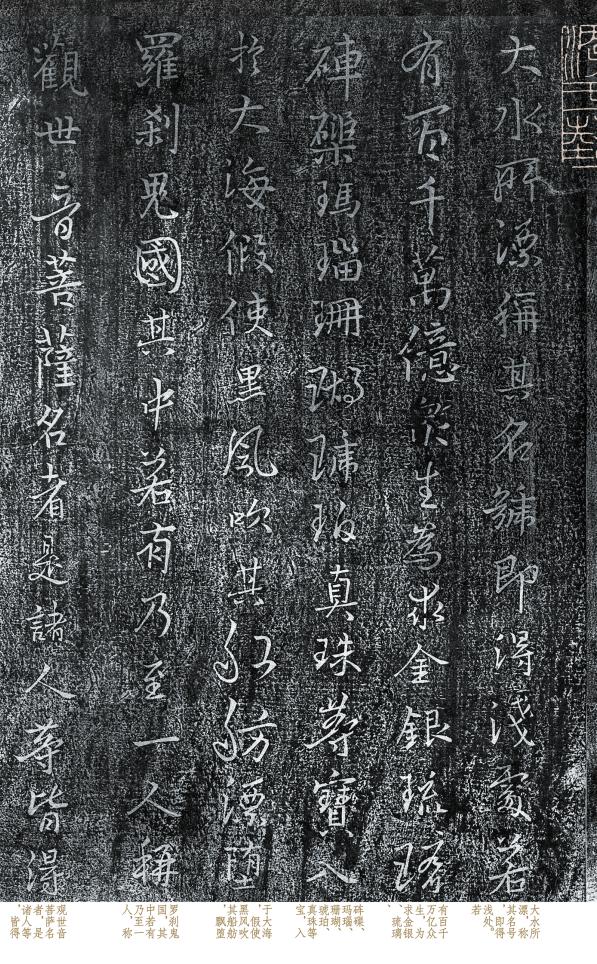 大水所漂稱其名號即得淺處若
有百千萬億眾生為求金銀琉璃
硨磲瑪瑙珊瑚琥珀真珠等寶入
於大海假使黑風吹其船舫漂墮
羅剎鬼國其中若有乃至一人稱
觀世音菩薩名者是諸人等皆得
大水所
漂，称
其名号
，即得
浅处。
若
有百千
万亿众
生，为
求金银
、琉璃
、
砗磲、
玛瑙、
珊瑚、
琥珀、
真珠等
宝，入
于大海
，假使
黑风吹
其船舫
，飘堕
罗刹鬼
国，其
中若有
乃至一
人，称
观世音
菩萨名
者，是
诸人等
，皆得